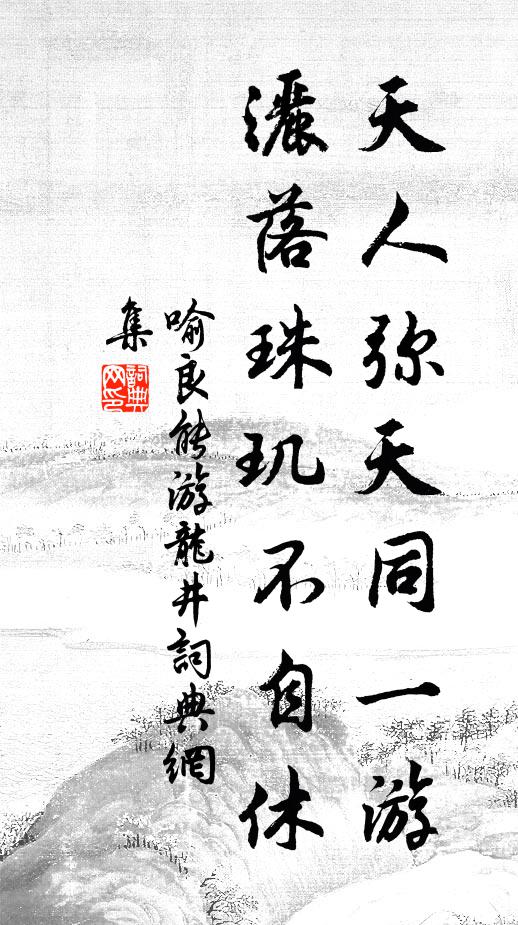 天人弥天同一游
灑落珠玑不自休
喻良能游龍井詞典網
集
詞典网印